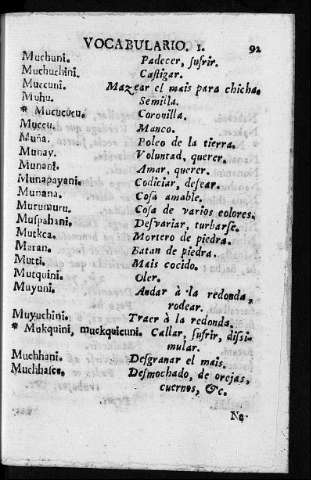 VOCABULARIO. I. 92
Muchuni. Padecer, sufrir.
Muchuchini. Castigar.
Muccuni. Mazcar el mais para chicha.
Muhu. Semilla.
* Mucucucu. Coronilla.
Muccu. Manco.
Muña. Poleo de la tierra.
Munay. Voluntad, querer.
Munani. Amar, querer.
Munapayani. Codiciar, desear.
Munana. Cosa amable.
Murumuru. Cosa de varios colores.
Muspahani. Desvariar, turbarse.
Mutkca. Mortero de piedra.
Maran. Batan de piedra.
Mutti. Mais cocido.
Mutquini. Oler.
Muyuni. Andar à la redonda,
rodear.
Muyuchini. Traer à la redonda.
* Mukquini, muckquicuni. Callar, sufrir, dissi-
mular.
Muchhani. Desgranar el mais.
Muchhasca. Desmochado, de orejas,
cuernos, &c.
Na-